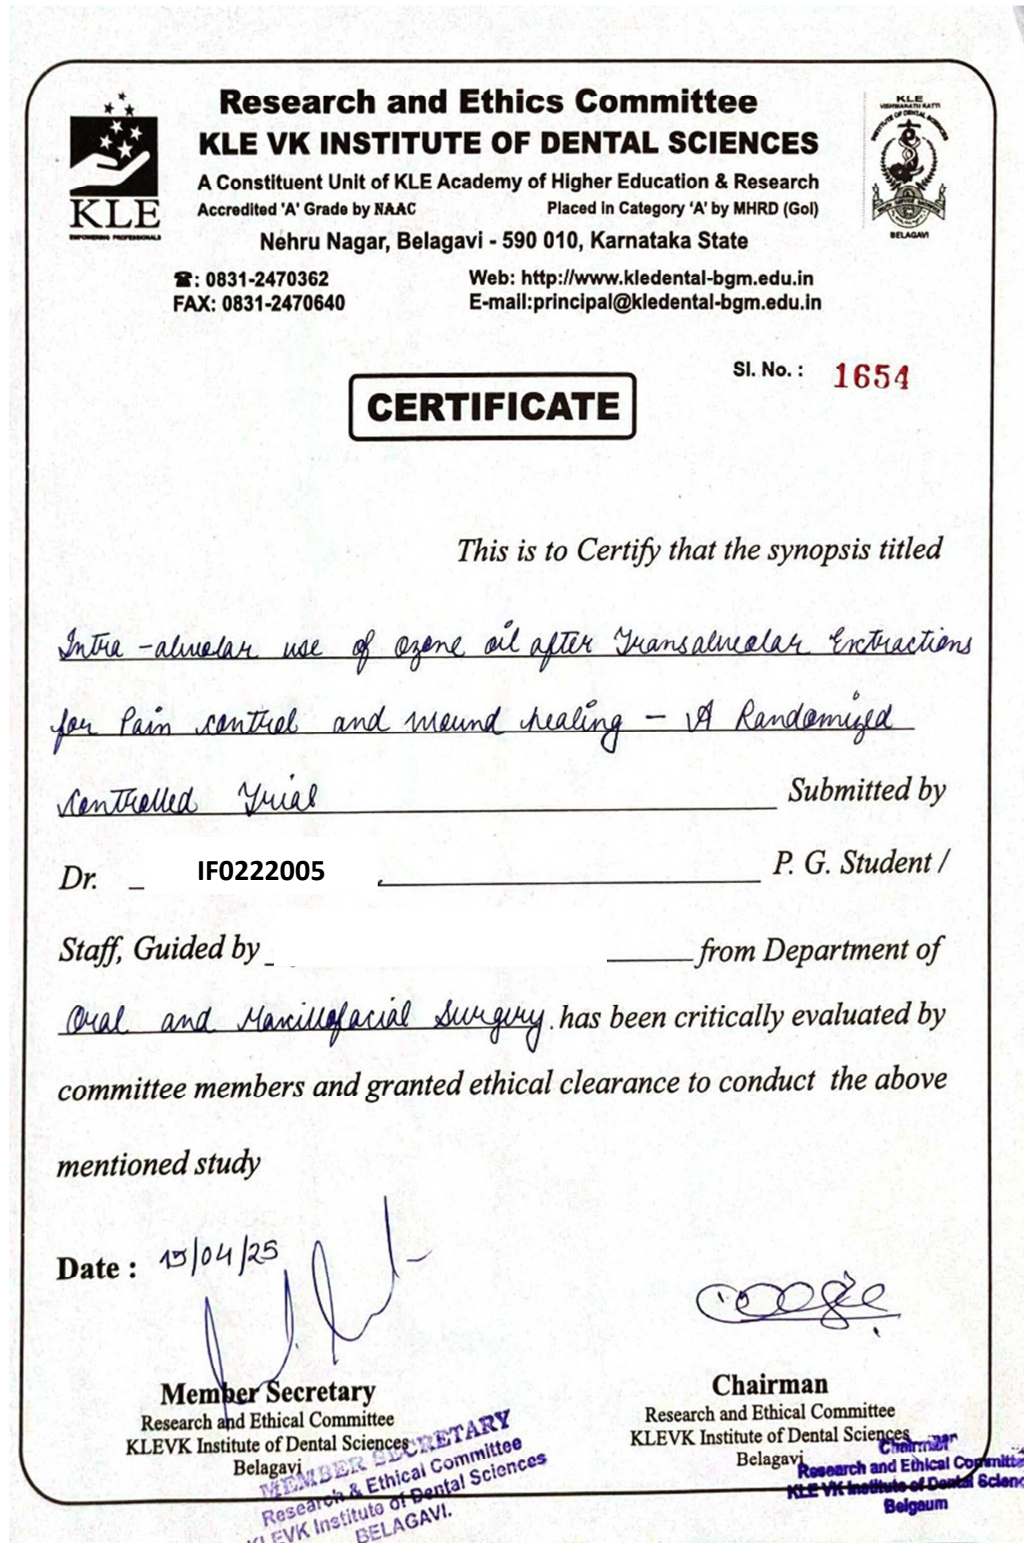 Research and Ethics Committee
KLE VK INSTITUTE OF DENTAL SCIENCES
A Constituent Unit of KLE Academy of Higher Education & Research
Accredited 'A' Grade by NAAC Placed in Category 'A' by MHRD (GoI)
Nehru Nagar, Belagavi - 590 010, Karnataka State
☎: 0831-2470362 Web: http://www.kledental-bgm.edu.in
FAX: 0831-2470640 E-mail:principal@kledental-bgm.edu.in
KLE
EMPOWERING PROFESSIONALS
KLE
VISHWANATH KATTI
INSTITUTE OF DENTAL SCIENCES
BELAGAVI
Sl. No. : 1654
CERTIFICATE
This is to Certify that the synopsis titled
Intra-alveolar use of ozone oil after Transalveolar Extractions
for Pain control and wound healing - A Randomized
controlled Trial Submitted by
Dr. IF0222005 P. G. Student /
Staff, Guided by from Department of
Oral and Maxillofacial Surgery. has been critically evaluated by
committee members and granted ethical clearance to conduct the above
mentioned study
Date : 15/04/25
Member Secretary
Research and Ethical Committee
KLEVK Institute of Dental Sciences
Belagavi
MEMBER SECRETARY
Research & Ethical Committee
KLEVK Institute of Dental Sciences
BELAGAVI.
Chairman
Research and Ethical Committee
KLEVK Institute of Dental Sciences
Belagavi
Chairman
Research and Ethical Committe
KLE VK Institute of Dental Scienc
Belgaum